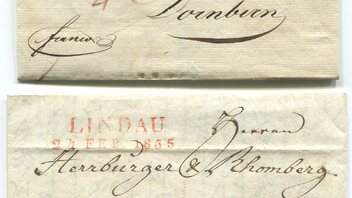 Dornbirn
franco
LINDAU
Herren
24 FEB 1835
Herrburger & Rhomberg